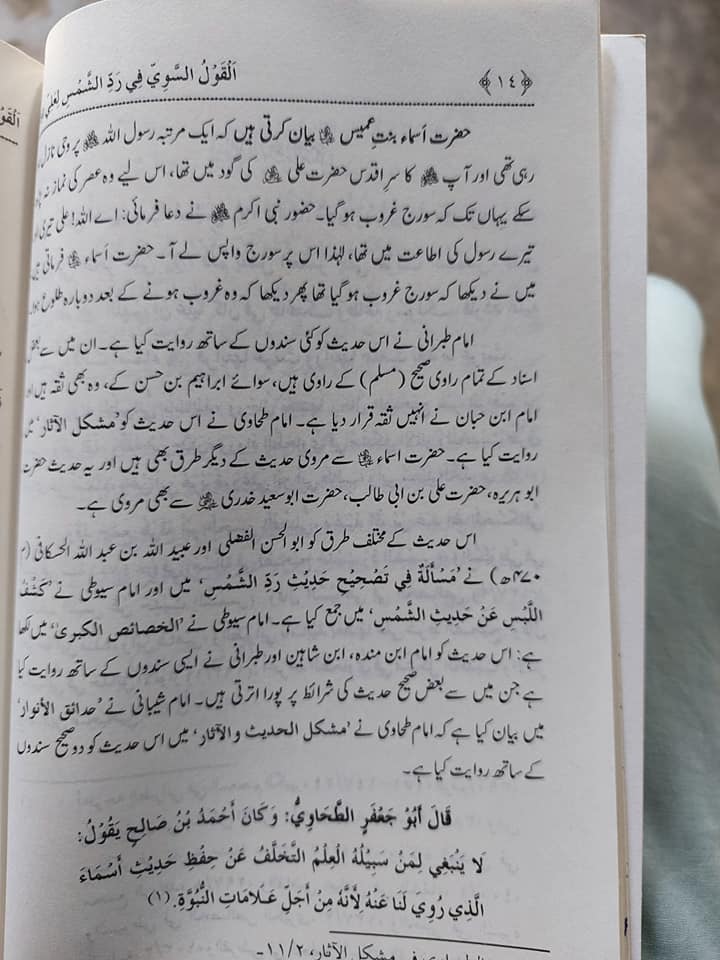 ﴿١٤﴾ اَلْقَوْلُ السَّوِيّ فِي رَدِّ الشَّمْسِ لِعَلِيّ
حضرت اَسماء بنتِ عمیس ؓ بیان کرتی ہیں کہ ایک مرتبہ رسول اللہ ﷺ پر وحی نازل
رہی تھی اور آپ ﷺ کا سرِ اقدس حضرت علی ؓ کی گود میں تھا، اس لیے وہ عصر کی نماز نہ
سکے یہاں تک کہ سورج غروب ہو گیا۔ حضور نبی اکرم ﷺ نے دعا فرمائی: اے اللہ! علی تیری
تیرے رسول کی اطاعت میں تھا، لہٰذا اس پر سورج واپس لے آ۔ حضرت اسماء ؓ فرماتی ہیں
میں نے دیکھا کہ سورج غروب ہو گیا تھا پھر دیکھا کہ وہ غروب ہونے کے بعد دوبارہ طلوع ہوا
امام طبرانی نے اس حدیث کو کئی سندوں کے ساتھ روایت کیا ہے۔ ان میں سے بعض
اسناد کے تمام راوی صحیح (مسلم) کے راوی ہیں، سوائے ابراہیم بن حسن کے، وہ بھی ثقہ ہیں اور
امام ابن حبان نے انہیں ثقہ قرار دیا ہے۔ امام طحاوی نے اس حدیث کو ’مشکل الآثار‘ میں
روایت کیا ہے۔ حضرت اسماء ؓ سے مروی حدیث کے دیگر طرق بھی ہیں اور یہ حدیث حضرت
ابو ہریرہ، حضرت علی بن ابی طالب، حضرت ابو سعید خدری ؓ سے بھی مروی ہے۔
اس حدیث کے مختلف طرق کو ابو الحسن الفضلی اور عبید اللہ بن عبد اللہ الحسکانی (م
٤٧٠ھ) نے ’مَسْأَلَةٌ فِي تَصْحِيْحِ حَدِيْثِ رَدِّ الشَّمْسِ‘ میں اور امام سیوطی نے ’كَشْفُ
اللَّبْسِ عَنْ حَدِيثِ الشَّمْسِ‘ میں جمع کیا ہے۔ امام سیوطی نے ’الخصائص الکبریٰ‘ میں لکھا
ہے: اس حدیث کو امام ابن مندہ، ابن شاہین اور طبرانی نے ایسی سندوں کے ساتھ روایت کیا
ہے جن میں سے بعض صحیح حدیث کی شرائط پر پورا اترتی ہیں۔ امام شیبانی نے ’حدائق الأنوار‘
میں بیان کیا ہے کہ امام طحاوی نے ’مشکل الحدیث و الآثار‘ میں اس حدیث کو دو صحیح سندوں
کے ساتھ روایت کیا ہے۔
قَالَ أَبُوْ جَعْفَرٍ الطَّحَاوِيُّ: وَكَانَ أَحْمَدُ بْنُ صَالِحٍ يَقُوْلُ:
لَا يَنْبَغِي لِمَنْ سَبِيْلُهُ الْعِلْمُ التَّخَلُّفُ عَنْ حِفْظِ حَدِيْثِ أَسْمَاءَ
الَّذِي رُوِيَ لَنَا عَنْهُ لِأَنَّهُ مِنْ أَجَلِّ عَلَامَاتِ النُّبُوَّةِ.(١)
في مشكل الآثار، ٢/١١۔